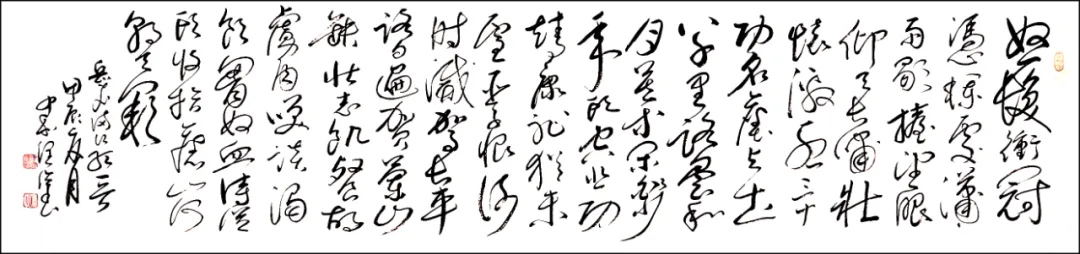 怒髮衝冠
憑欄處瀟
雨歇擡望眼
仰天長嘯壯
懷激烈三十
功名塵與土
八千里路雲和
月莫等閑白了少
年頭空悲切
靖康恥猶未
雪臣子恨何
時滅駕長車
踏破賀蘭山
缺壯志飢餐胡
虜肉笑談渴
飲匈奴血待從
頭收拾舊山河
朝天闕
岳飛滿江紅
甲辰夏月